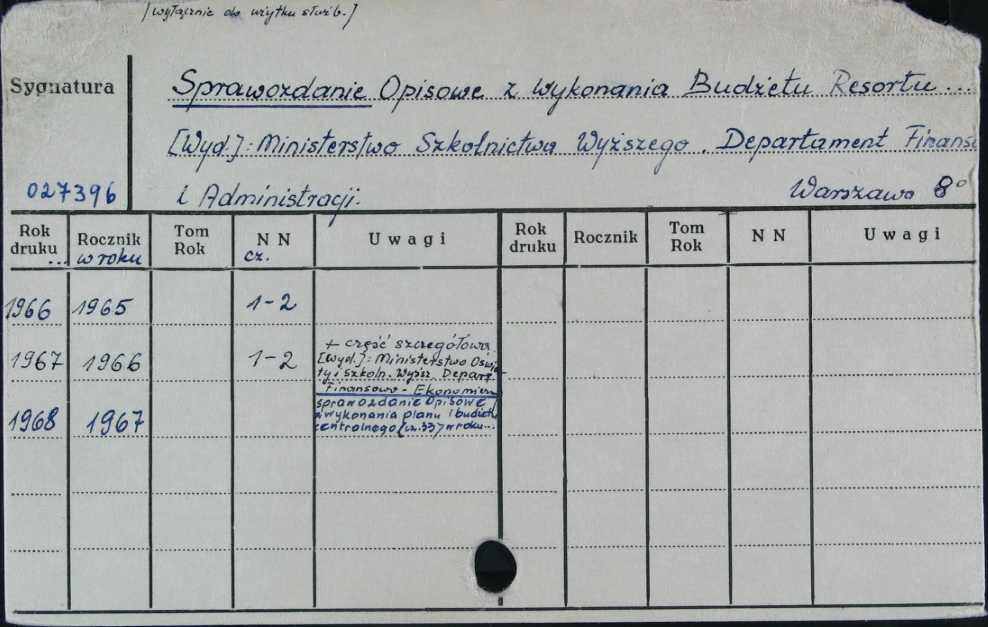 [wyłącznie do użytku służb.]
Sygnatura
Sprawozdanie Opisowe z Wykonania Budżetu Resortu...
[Wyd.]: Ministerstwo Szkolnictwa Wyższego. Departament Finans
027396 i Administracji. Warszawa 8°
Rok druku Rocznik Tom Rok NN Uwagi Rok druku Rocznik Tom Rok NN Uwagi
... w roku cz.
1966 1965 1-2
+ część szczegółowa
1967 1966 1-2 [Wyd.]: Ministerstwo Oświa-
ty i Szkoln. Wyższ. Depart.
Finansowo-Ekonomiczn
Sprawozdanie Opisowe
1968 1967 z wykonania planu i budżetu
centralnego (cz. 33) w roku...